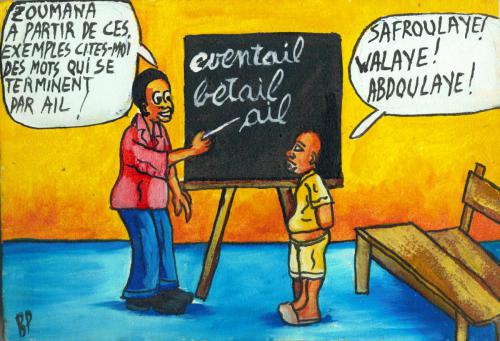 ZOUMANA
A PARTIR DE CES
EXEMPLES CITES-MOI
DES MOTS QUI SE
TERMINENT
PAR AIL!
SAFROULAYE!
WALAYE!
ABDOULAYE!
eventail
betail
ail
BP